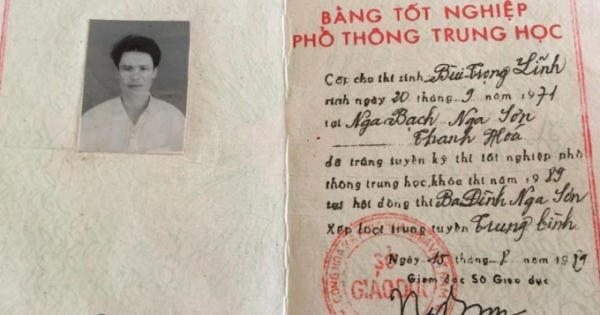 BẰNG TỐT NGHIỆP
PHỔ THÔNG TRUNG HỌC
Cấp cho thí sinh Bùi Trọng Lĩnh
sinh ngày 20 tháng 9 năm 1971
tại Nga Bạch Nga Sơn
Thanh Hoá
đã trúng tuyển kỳ thi tốt nghiệp phổ
thông trung học, khóa thi năm 1989
tại hội đồng thi Ba Đình Nga Sơn
Xếp loại trúng tuyển Trung bình
Ngày 15 tháng 8 1989
Giám đốc Sở Giáo dục
SỞ
GIÁO DỤC